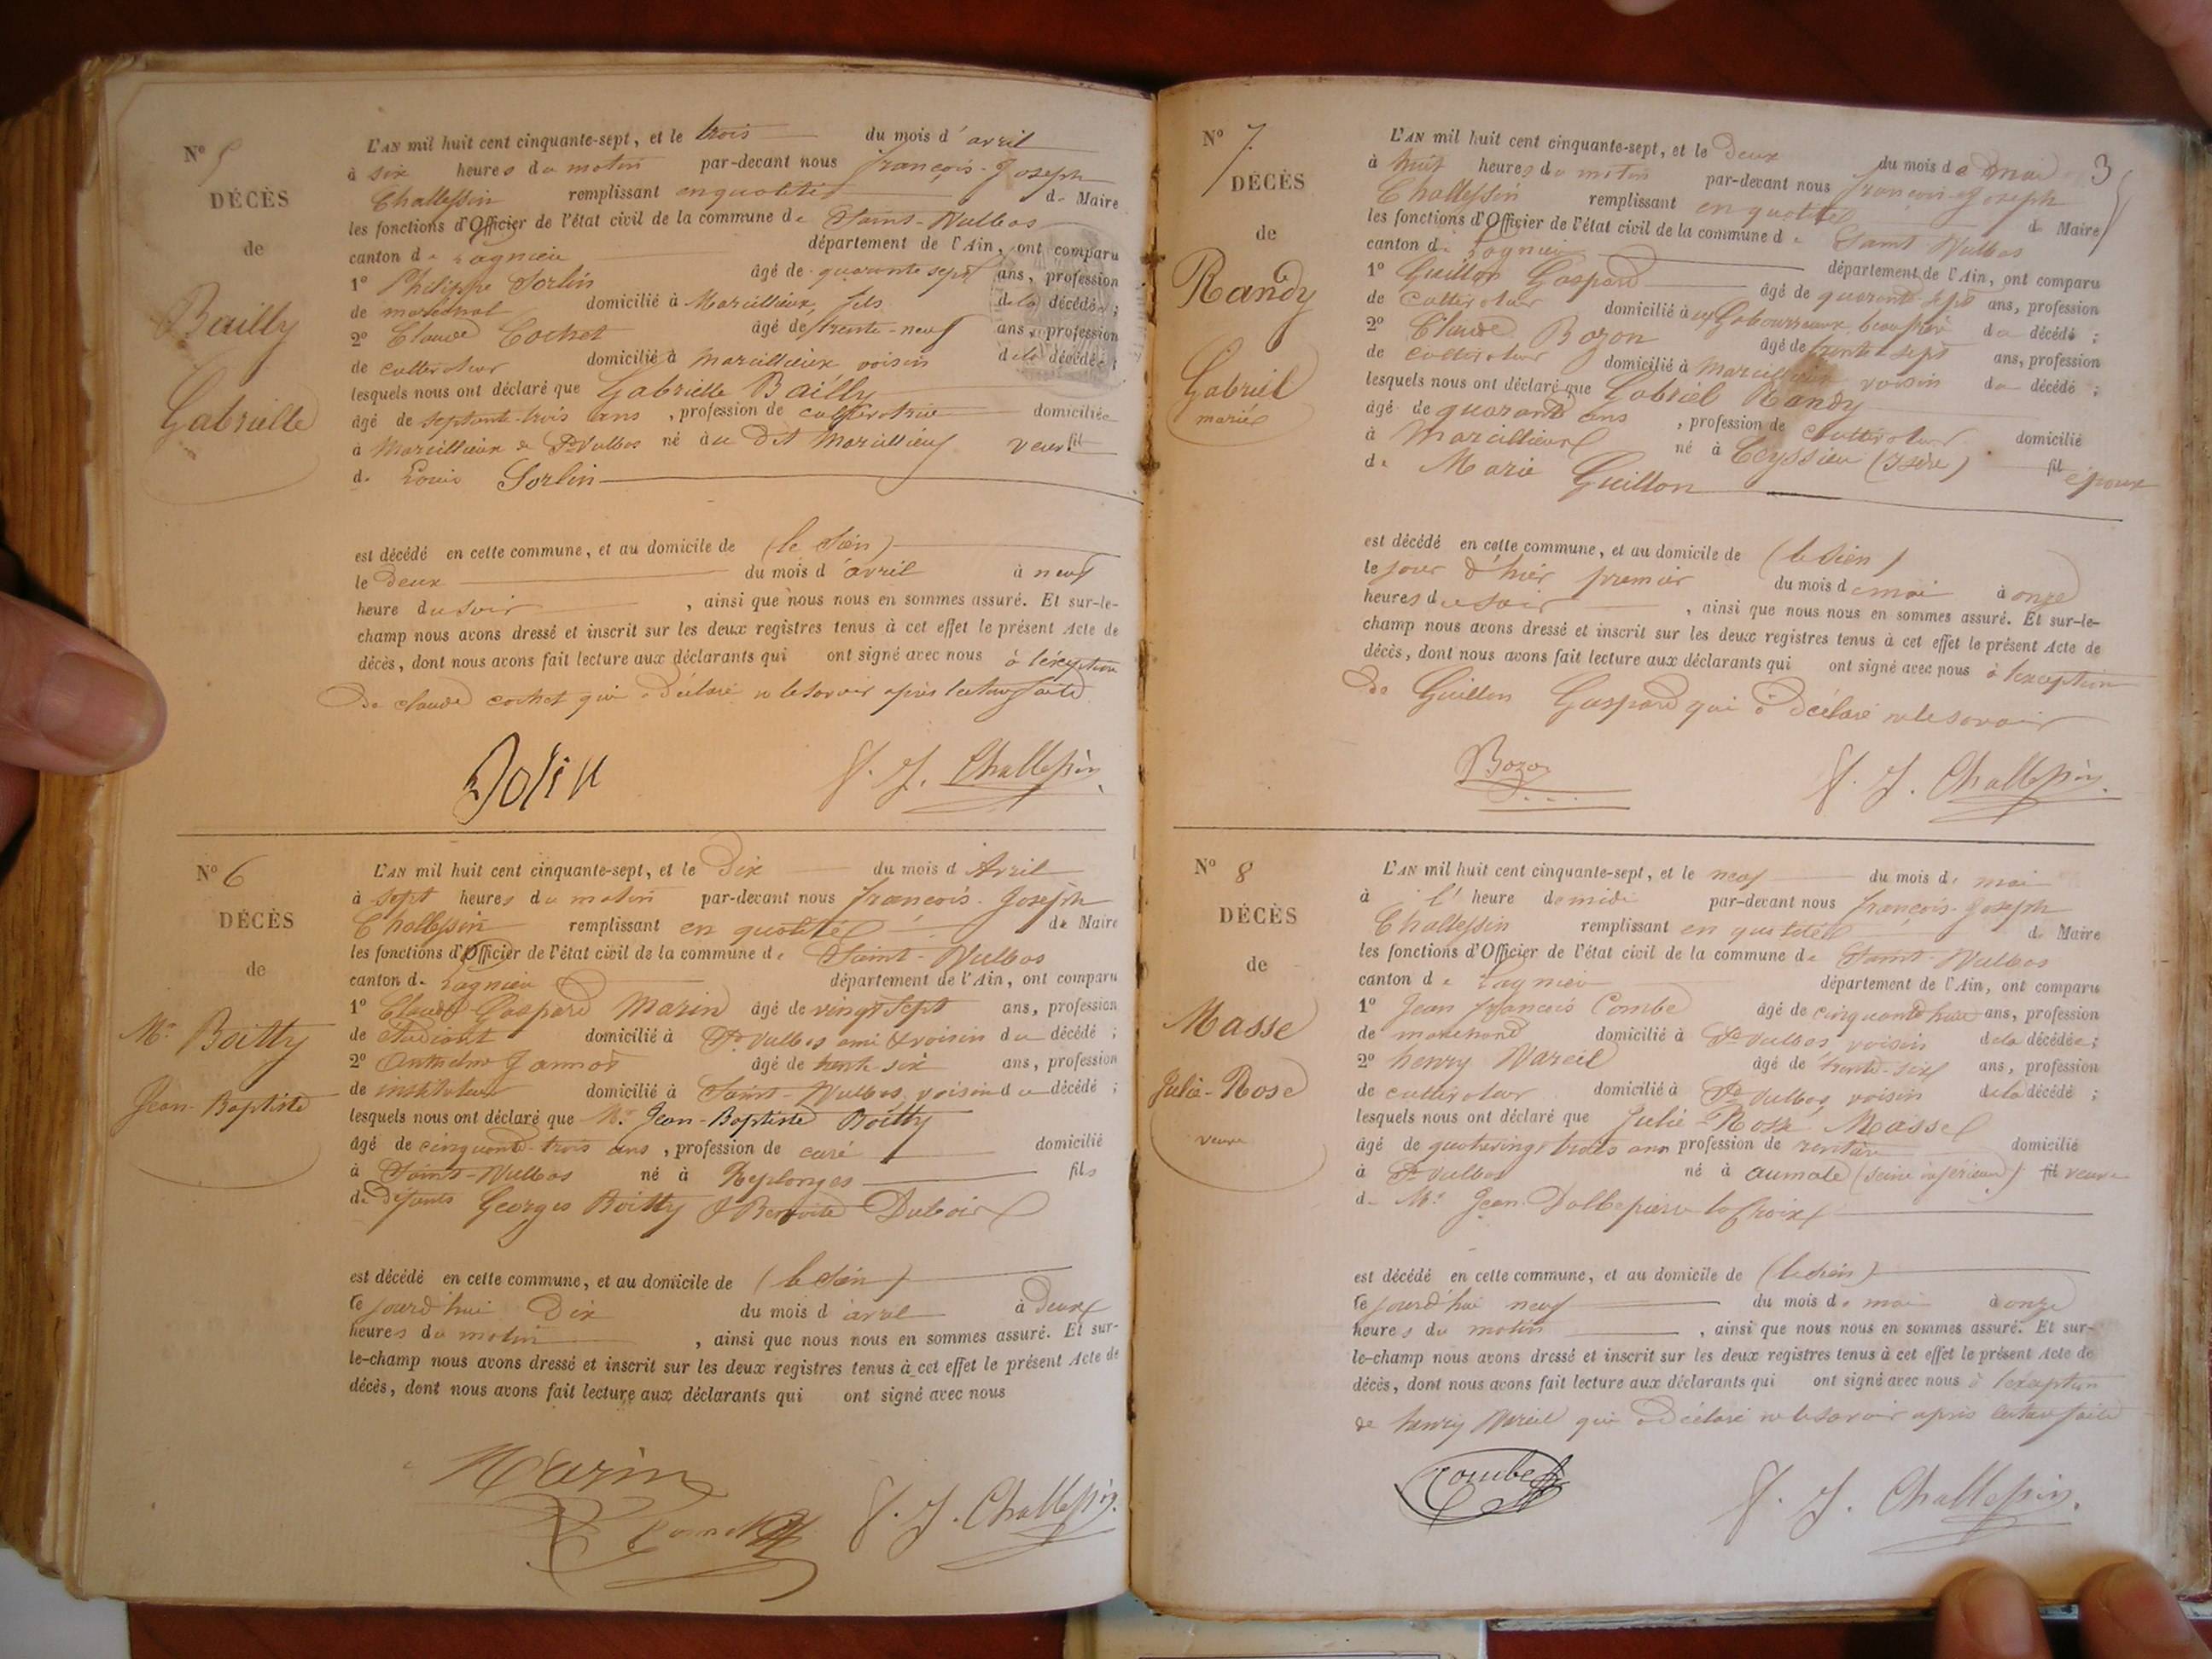 N° 5
DÉCÈS
de
Bailly
Gabrielle
L'AN mil huit cent cinquante-sept, et le trois du mois d'avril
à six heures du matin par-devant nous françois-Joseph
Challessin remplissant en qualité de Maire
les fonctions d'Officier de l'état civil de la commune de Saint-Vulbas
canton de Lagnieu département de l'Ain, ont comparu
1° Philippe Sorlin âgé de quarante sept ans, profession
de maréchal domicilié à Marcillieux, fils de la décédée ;
2° Claude Cochet âgé de trente-neuf ans, profession
de cultivateur domicilié à Marcillieux voisin de la décédée ;
lesquels nous ont déclaré que Gabrielle Bailly
âgé de septante-trois ans, profession de cultivatrice domiciliée
à Marcillieux de St Vulbas né au dit Marcillieux veuve fil
de Louis Sorlin
est décédé en cette commune, et au domicile de (le sien)
le deux du mois d'avril à neuf
heure du soir, ainsi que nous nous en sommes assuré. Et sur-le-
champ nous avons dressé et inscrit sur les deux registres tenus à cet effet le présent Acte de
décès, dont nous avons fait lecture aux déclarants qui ont signé avec nous à l'exception
de claude cochet qui a déclaré ne le savoir après lecture faite
F. J. Challessin
N° 6
DÉCÈS
de
Mr Boitty
Jean-Baptiste
L'AN mil huit cent cinquante-sept, et le Dix du mois d'Avril
à sept heures du matin par-devant nous françois-Joseph
Challessin remplissant en qualité de Maire
les fonctions d'Officier de l'état civil de la commune de Saint-Vulbas
canton de Lagnieu département de l'Ain, ont comparu
1° Claude Gaspard Marin âgé de vingt sept ans, profession
de Etudiant domicilié à St Vulbas ami & voisin du décédé ;
2° Anthelme Jannot âgé de trente-six ans, profession
de instituteur domicilié à Saint-Vulbas, voisin du décédé ;
lesquels nous ont déclaré que Mr Jean-Baptiste Boitty
âgé de cinquante-trois ans, profession de curé domicilié
à Saint-Vulbas né à Replonges fils
de défunts Georges Boitty & Benoite Dubois
est décédé en cette commune, et au domicile de (le sien)
le jourd'hui Dix du mois d'avril à Deux
heures du matin, ainsi que nous nous en sommes assuré. Et sur-
le-champ nous avons dressé et inscrit sur les deux registres tenus à cet effet le présent Acte de
décès, dont nous avons fait lecture aux déclarants qui ont signé avec nous
Marin
F. J. Challessin
3
N° 7
DÉCÈS
de
Randy
Gabriel
marié
L'AN mil huit cent cinquante-sept, et le Deux du mois de mai
à huit heures du matin par-devant nous françois-Joseph
Challessin remplissant en qualité de Maire
les fonctions d'Officier de l'état civil de la commune de Saint-Vulbas
canton de Lagnieu département de l'Ain, ont comparu
1° Guillon Gaspard âgé de quarante-sept ans, profession
de cultivateur domicilié à beaufrère du décédé ;
2° Claude Bozon âgé de trente sept ans, profession
de cultivateur domicilié à Marcillieux voisin du décédé ;
lesquels nous ont déclaré que Gabriel Randy
âgé de quarante ans, profession de cultivateur domicilié
à Marcillieux né à Leyssieu (Isère) fil époux
de Marie Guillon
est décédé en cette commune, et au domicile de (le sien)
le jour d'hier premier du mois de mai à onze
heures du soir, ainsi que nous nous en sommes assuré. Et sur-le-
champ nous avons dressé et inscrit sur les deux registres tenus à cet effet le présent Acte de
décès, dont nous avons fait lecture aux déclarants qui ont signé avec nous à l'exception
de Guillon Gaspard qui a déclaré ne le savoir
Bozon
F. J. Challessin
N° 8
DÉCÈS
de
Masse
Julie-Rose
veuve
L'AN mil huit cent cinquante-sept, et le neuf du mois de mai
à l' heure de midi par-devant nous françois-Joseph
Challessin remplissant en qualité de Maire
les fonctions d'Officier de l'état civil de la commune de Saint-Vulbas
canton de Lagnieu département de l'Ain, ont comparu
1° Jean françois Combe âgé de cinquante huit ans, profession
de marchand domicilié à St Vulbas, voisin de la décédée ;
2° henry Vareil âgé de trente-six ans, profession
de cultivateur domicilié à St Vulbas, voisin de la décédé ;
lesquels nous ont déclaré que Julie-Rose Masse
âgé de quatrevingt trois ans profession de rentière domicilié
à St Vulbas né à aumale (seine inférieure) fil veuve
de Mr Jean
est décédé en cette commune, et au domicile de (le sien)
le jourd'hui neuf du mois de mai à onze
heures du matin, ainsi que nous nous en sommes assuré. Et sur-
le-champ nous avons dressé et inscrit sur les deux registres tenus à cet effet le présent Acte de
décès, dont nous avons fait lecture aux déclarants qui ont signé avec nous à l'exception
de henry Vareil qui a déclaré ne le savoir après lecture faite
Combe
F. J. Challessin